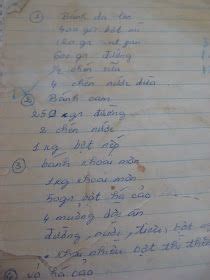 ① Bánh da lợn
400 gr bột
160 gr
600 gr đường
½ chén
4 chén nước dừa
② Bánh cam
250 gr đường
2 chén nước
1 kg bột nếp
③ banh khoai môn
1 kg khoai môn
50gr bột há cảo
4 muỗng dầu ăn
đường, muối, tiêu, bột
khoai nhiều bột thì
④ vỏ há cảo